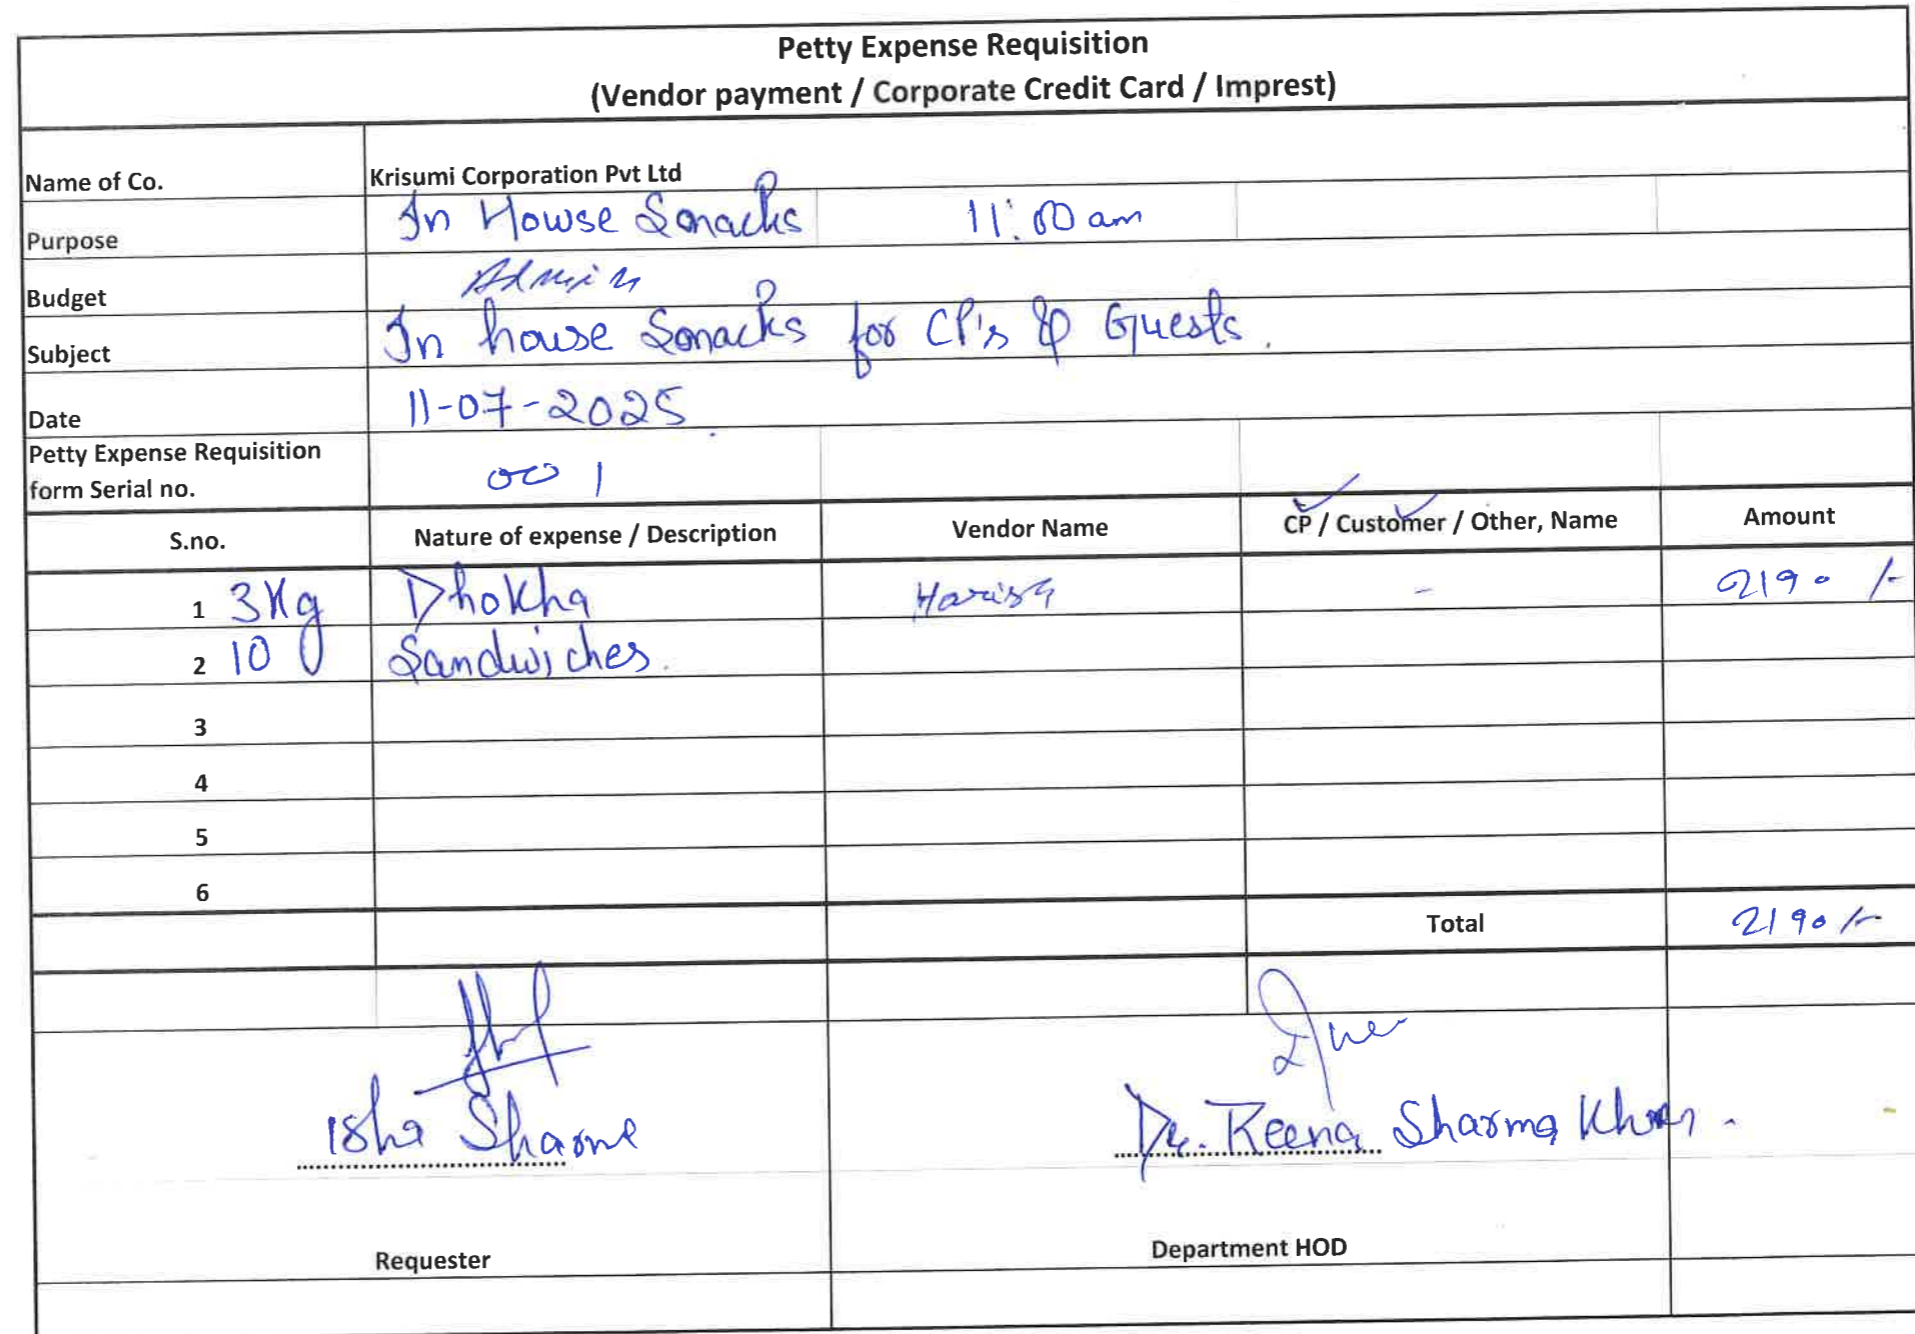 Petty Expense Requisition
(Vendor payment / Corporate Credit Card / Imprest)
Name of Co. Krisumi Corporation Pvt Ltd
Purpose In House Snacks 11:00 am
Budget Admin
Subject In house Snacks for CP's & Guests.
Date 11-07-2025
Petty Expense Requisition
form Serial no. 001
S.no. Nature of expense / Description Vendor Name CP / Customer / Other, Name Amount
1 3Kg Dhokha Harish - 2190 /-
2 10 Sandwiches.
3
4
5
6
Total 2190 /-
Isha Sharma Dr. Reena Sharma
Requester Department HOD